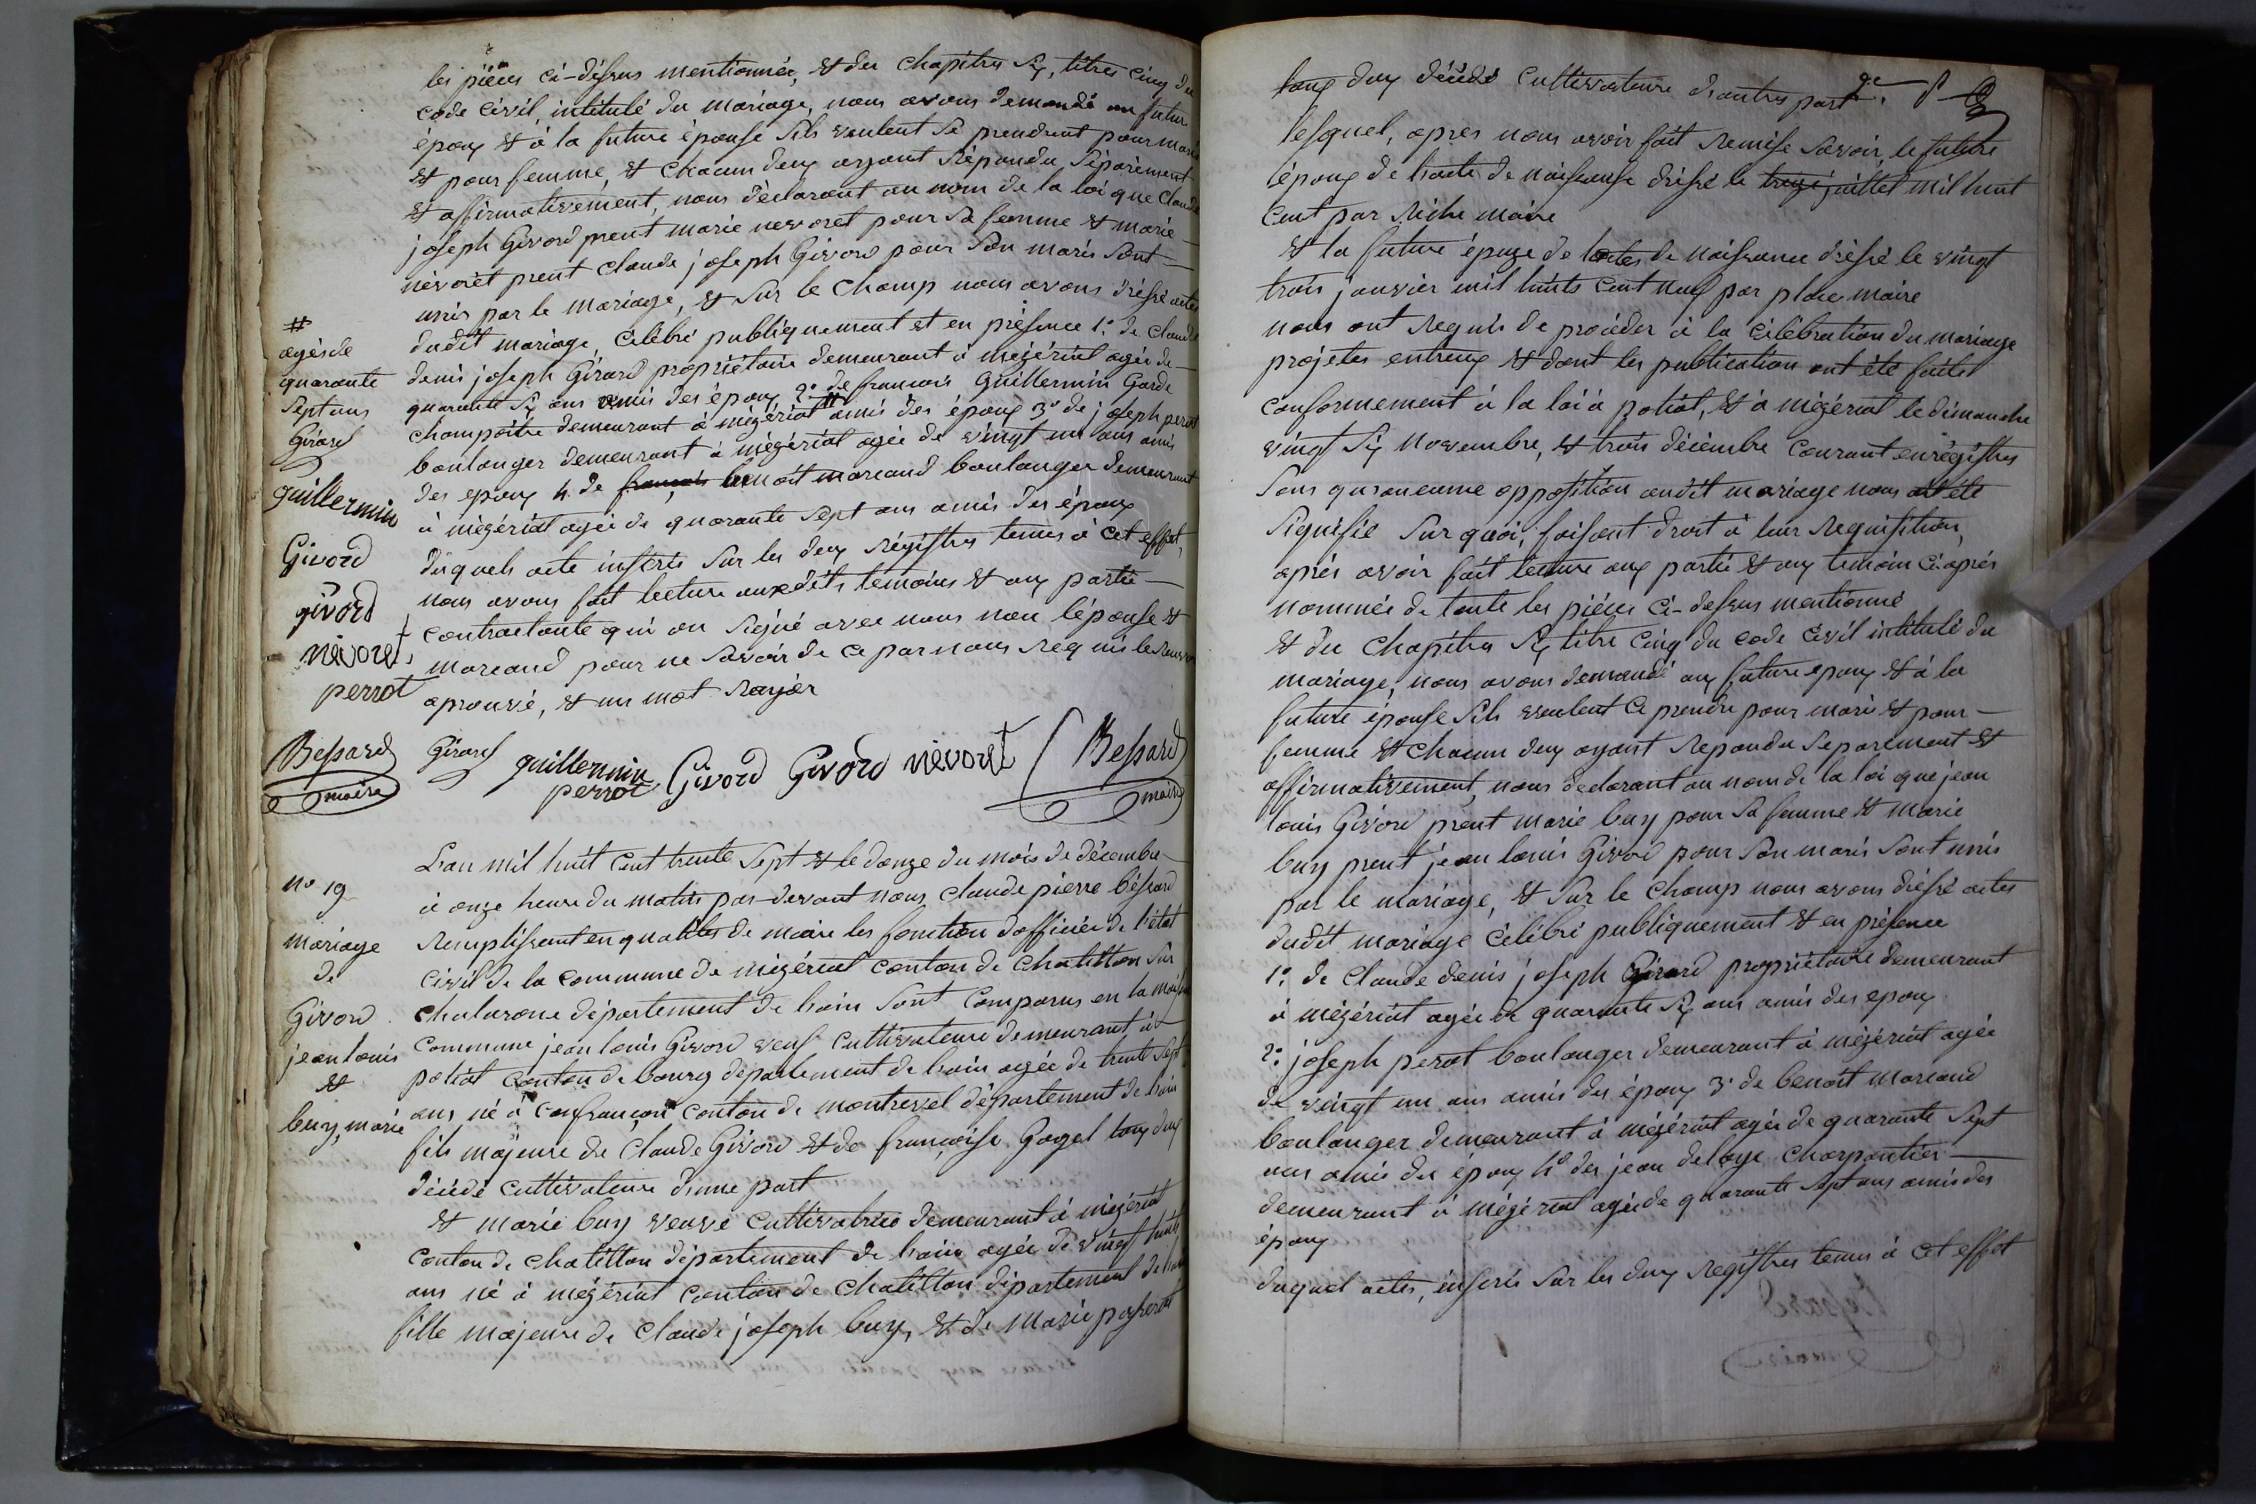 les pièces ci-dessus mentionnée, et du chapitre six, titres cinq du
code civil, intitulé du mariage, nous avons demandé au futur
époux et à la future épouse s'ils veulent se prendrent pour maris
et pour femme, et chacun deux ayant répondu séparément
et affirmativement, nous déclarant au nom de la loi que Claude
joseph Givord prent marie nevoret pour sa femme et marie
névorèt prent claude joseph Givord pour son maris sont
unis par le mariage, et sur le champ nous avons dréssé actes
dudit mariage, célébré publiquement et en présence 1.° de claude
denis joseph Girard propriétaire demeurant à mézériat agée de
quarante six ans amis des époux 2.° de francois Guillermin Garde
champaitre demeurant à mézériat # amis des époux 3.° de joseph perrot
boulanger demeurant à mézériat agée de vingt un ans amis
des epoux 4. de francois benoit marcand boulanger demeurant
à mézériat agée de quarante sept ans amis des époux
duquels acte inseré sur les deux régistres tenus à cet effet,
nous avons fait lecture auxdits temoins et aux partie
contractante qui on signé avec nous non l'épouse et
marcand pour ne savoir de ce par nous requis le renvoi
aprouvé, et un mot rayér
#
agés de
quarante
sept ans
Girard
guillermin
Givord
givord
nevoret
perrot
Bessard
maire
Girard guillermin Givord Givord nevoret Bessard
perrot maire
n° 19
mariage
de
Givord
jean louis
et
buy, marie
L'an mil huit cent trente sept et le douze du mois de décembre
à onze heure du matin par-devant nous, claude pierre béssard
remplissant en qualités de maire les fonction d'officier de l'état
civil de la commune de mézériat canton de chatillon sur
chalarone département de l'ain sont comparus en la maison
commune jean louis Givord veuf cultivateur demeurant à
poliat canton de bourg département de l'ain agée de trente sept
ans né à confrançon canton de montrevel département de l'ain
fils majeure de Claude Givord et de françoise Gogel tous deux
décédé cultivateure d'une part
et marie buy veuve cultivatrice demeurant à mézériat
canton de chatillon département de l'ain agée de vingt huit
ans né à mézériat canton de chatillon département de l'ain
fille majeure de Claude joseph buy, et de Marie passerat
tous deux décédé cultivateure d'autres part
lesquel, apres nous avoir fait remise savoir, le future
époux de l'acte de naissanse dréssé le treize juillet mil huit
cent par Riche maire
et la future épouze de l'actes de naissance dréssé le vingt
trois janvier mil huits cent neuf par place maire
nous ont requis de procéder à la célébration du mariage
projetés entreux et dont les publication ont été faites
conformement à la loi à poliat, et à mézériat le dimanche
vingt six novembre, et trois décembre courant enrégistres
sans qu'aucune opposition audit mariage nous ait été
signifié sur quoi, faisant droit à leur requisition,
après avoir fait lecture aux partie et aux témoin ci-après
nommés de toute les pièces ci-dessus mentionné
et du chapitre six titre cinq du code civil intitulé du
mariage, nous avons demandé aux future epoux et à la
future épouse s'ils veulent ce prendre pour maris et pour
femme et chacun deux ayant repondu séparement et
affirmativement, nous declarant au nom de la loi que jean
louis Givord prent marie buy pour sa femme et marie
buy prent jean louis Givord pour son maris sont unis
par le mariage, et sur le champ nous avons dréssé actes
dudit mariage célébré publiquement et en présence
1.° de Claude denis joseph Girard propriétaire demeurant
à mézériat agée de quarante six ans amis des epoux
2.° joseph perot boulanger demeurant à mézériat agée
de vingt un ans amis des époux 3.° de benoit marcand
boulanger demeurant à mézériat agée de quarante sept
ans amis des époux 4.° des jean delaye charpantier
demeurant à mézériat agée de quarante sept ans amis des
époux
duquel actes, inseris sur les deux registres tenus à cet effet